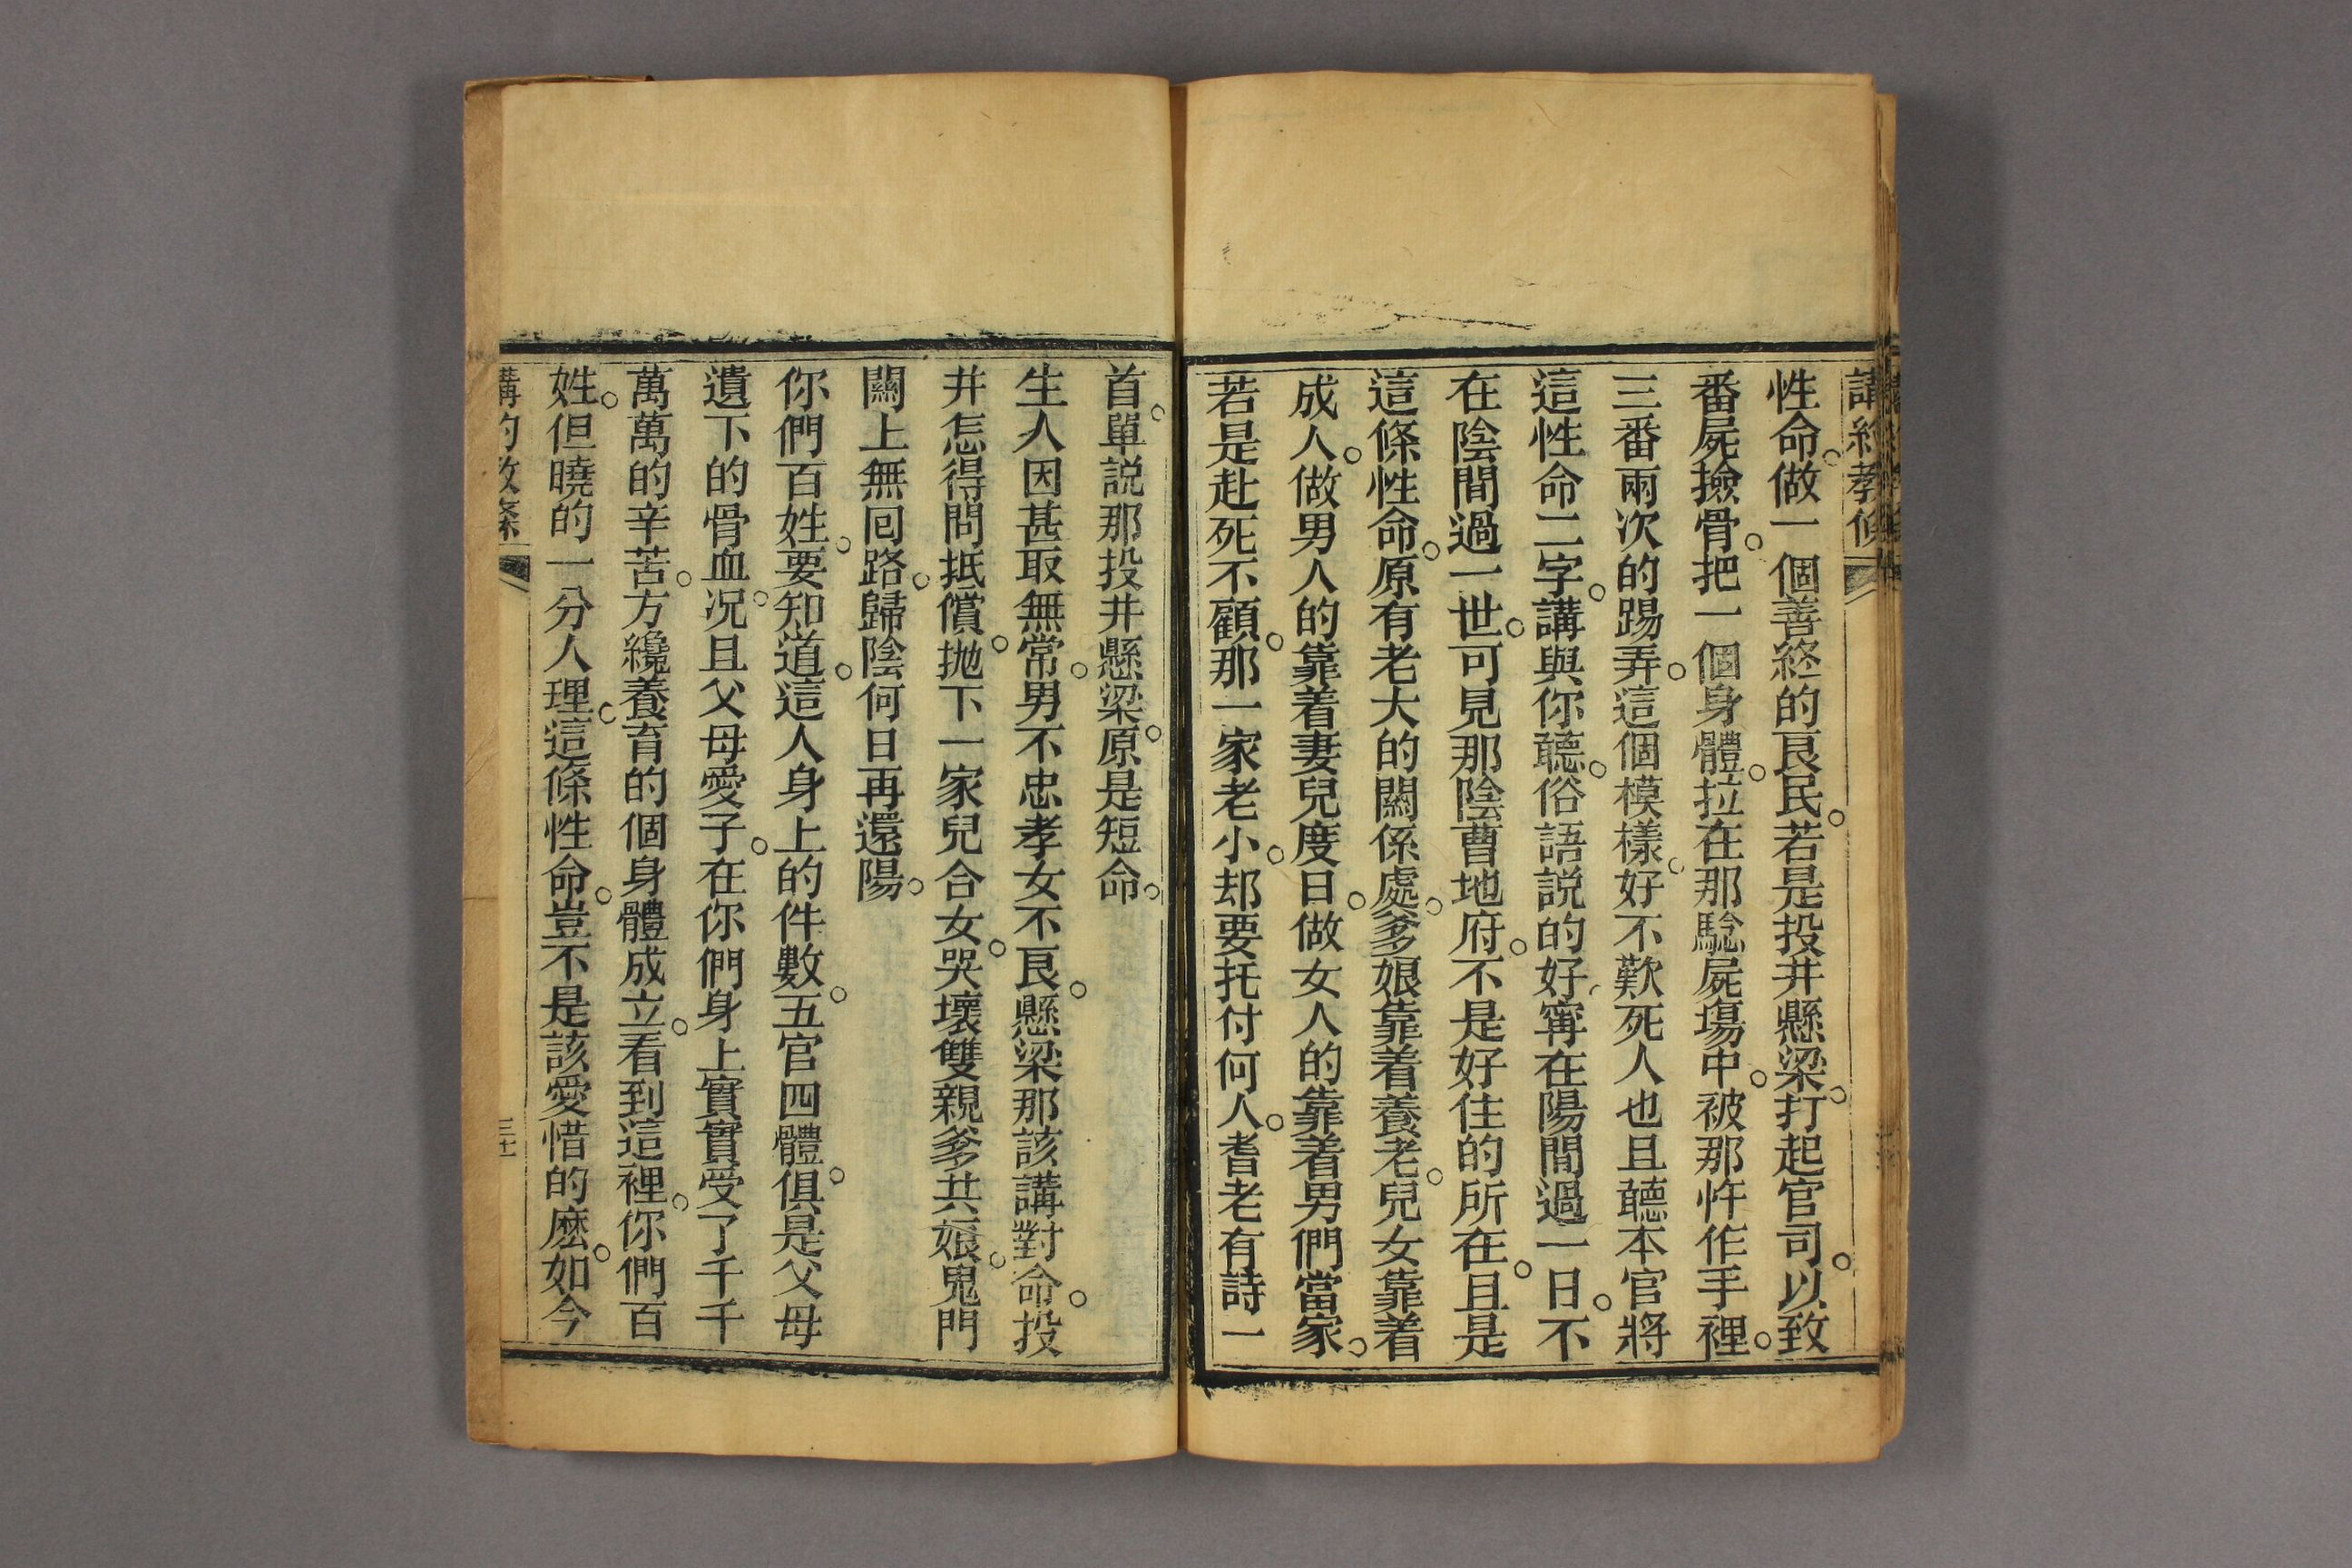 講約教條
性命。做一個善終的良民。若是投井懸梁。打起官司。以致
番屍撿骨。把一個身體。拉在那騐屍塲中。被那忤作手裡。
三番兩次的踢弄。這個模樣。好不歎死人也且聽本官將
這性命二字。講與你聽。俗語説的好。寗在陽間過一日。不
在陰間過一世。可見那陰曹地府。不是好住的所在。且是
這條性命。原有老大的關係處。爹娘靠着養老。兒女靠着
成人。做男人的靠着妻兒度日。做女人的靠着男們當家。
若是赴死不顧。那一家老小。却要托付何人。耆老有詩一
首。單説那投井懸梁。原是短命。
生人因甚取無常。男不忠孝女不良。懸梁那該講對命。投
井怎得問抵償。抛下一家兒合女。哭壞雙親爹共娘。鬼門
關上無囘路。歸陰何日再還陽。
你們百姓。要知道。這人身上的件數。五官四體。俱是父母
遺下的骨血。况且父母愛子。在你們身上實實受了千千
萬萬的辛苦。方纔養育的個身體成立。看到這裡。你們百
姓。但曉的一分人理。這條性命。豈不是該愛惜的麽。如今
講約教條
三十一